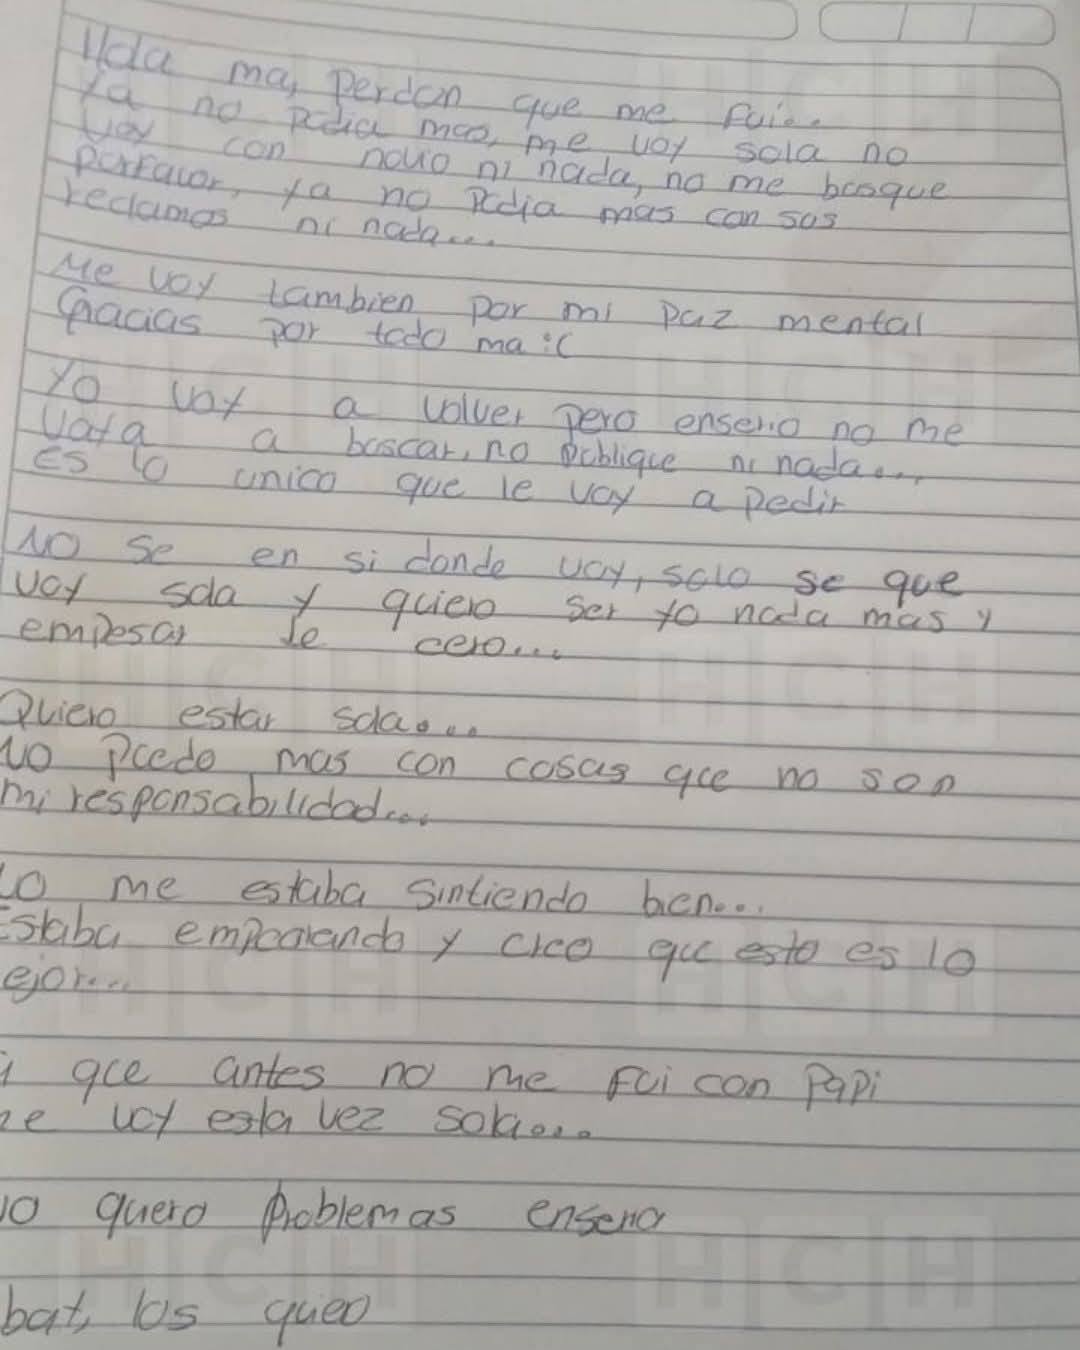 Hola ma, perdon que me fui...
Ya no podia mas, me voy sola no
voy con novio ni nada, no me busque
porfavor, ya no podia mas con sus
reclamos ni nada...
Me voy tambien por mi paz mental
Gracias por todo ma :(
Yo voy a volver pero enserio no me
vaya a buscar, no publique ni nada...
es lo unico que le voy a pedir
No se en si donde voy, solo se que
voy sola y quiero ser yo nada mas y
empesar de cero...
Quiero estar sola...
No puedo mas con cosas que no son
mi responsabilidad...
me estaba sintiendo bien...
Estaba empeorando y creo que esto es lo
ejor...
que antes no me fui con Papi
voy esta vez sola...
quero problemas enserio
bat, los queo
HCH
HCH
HCH
HCH
HCH
HCH
HCH
HCH